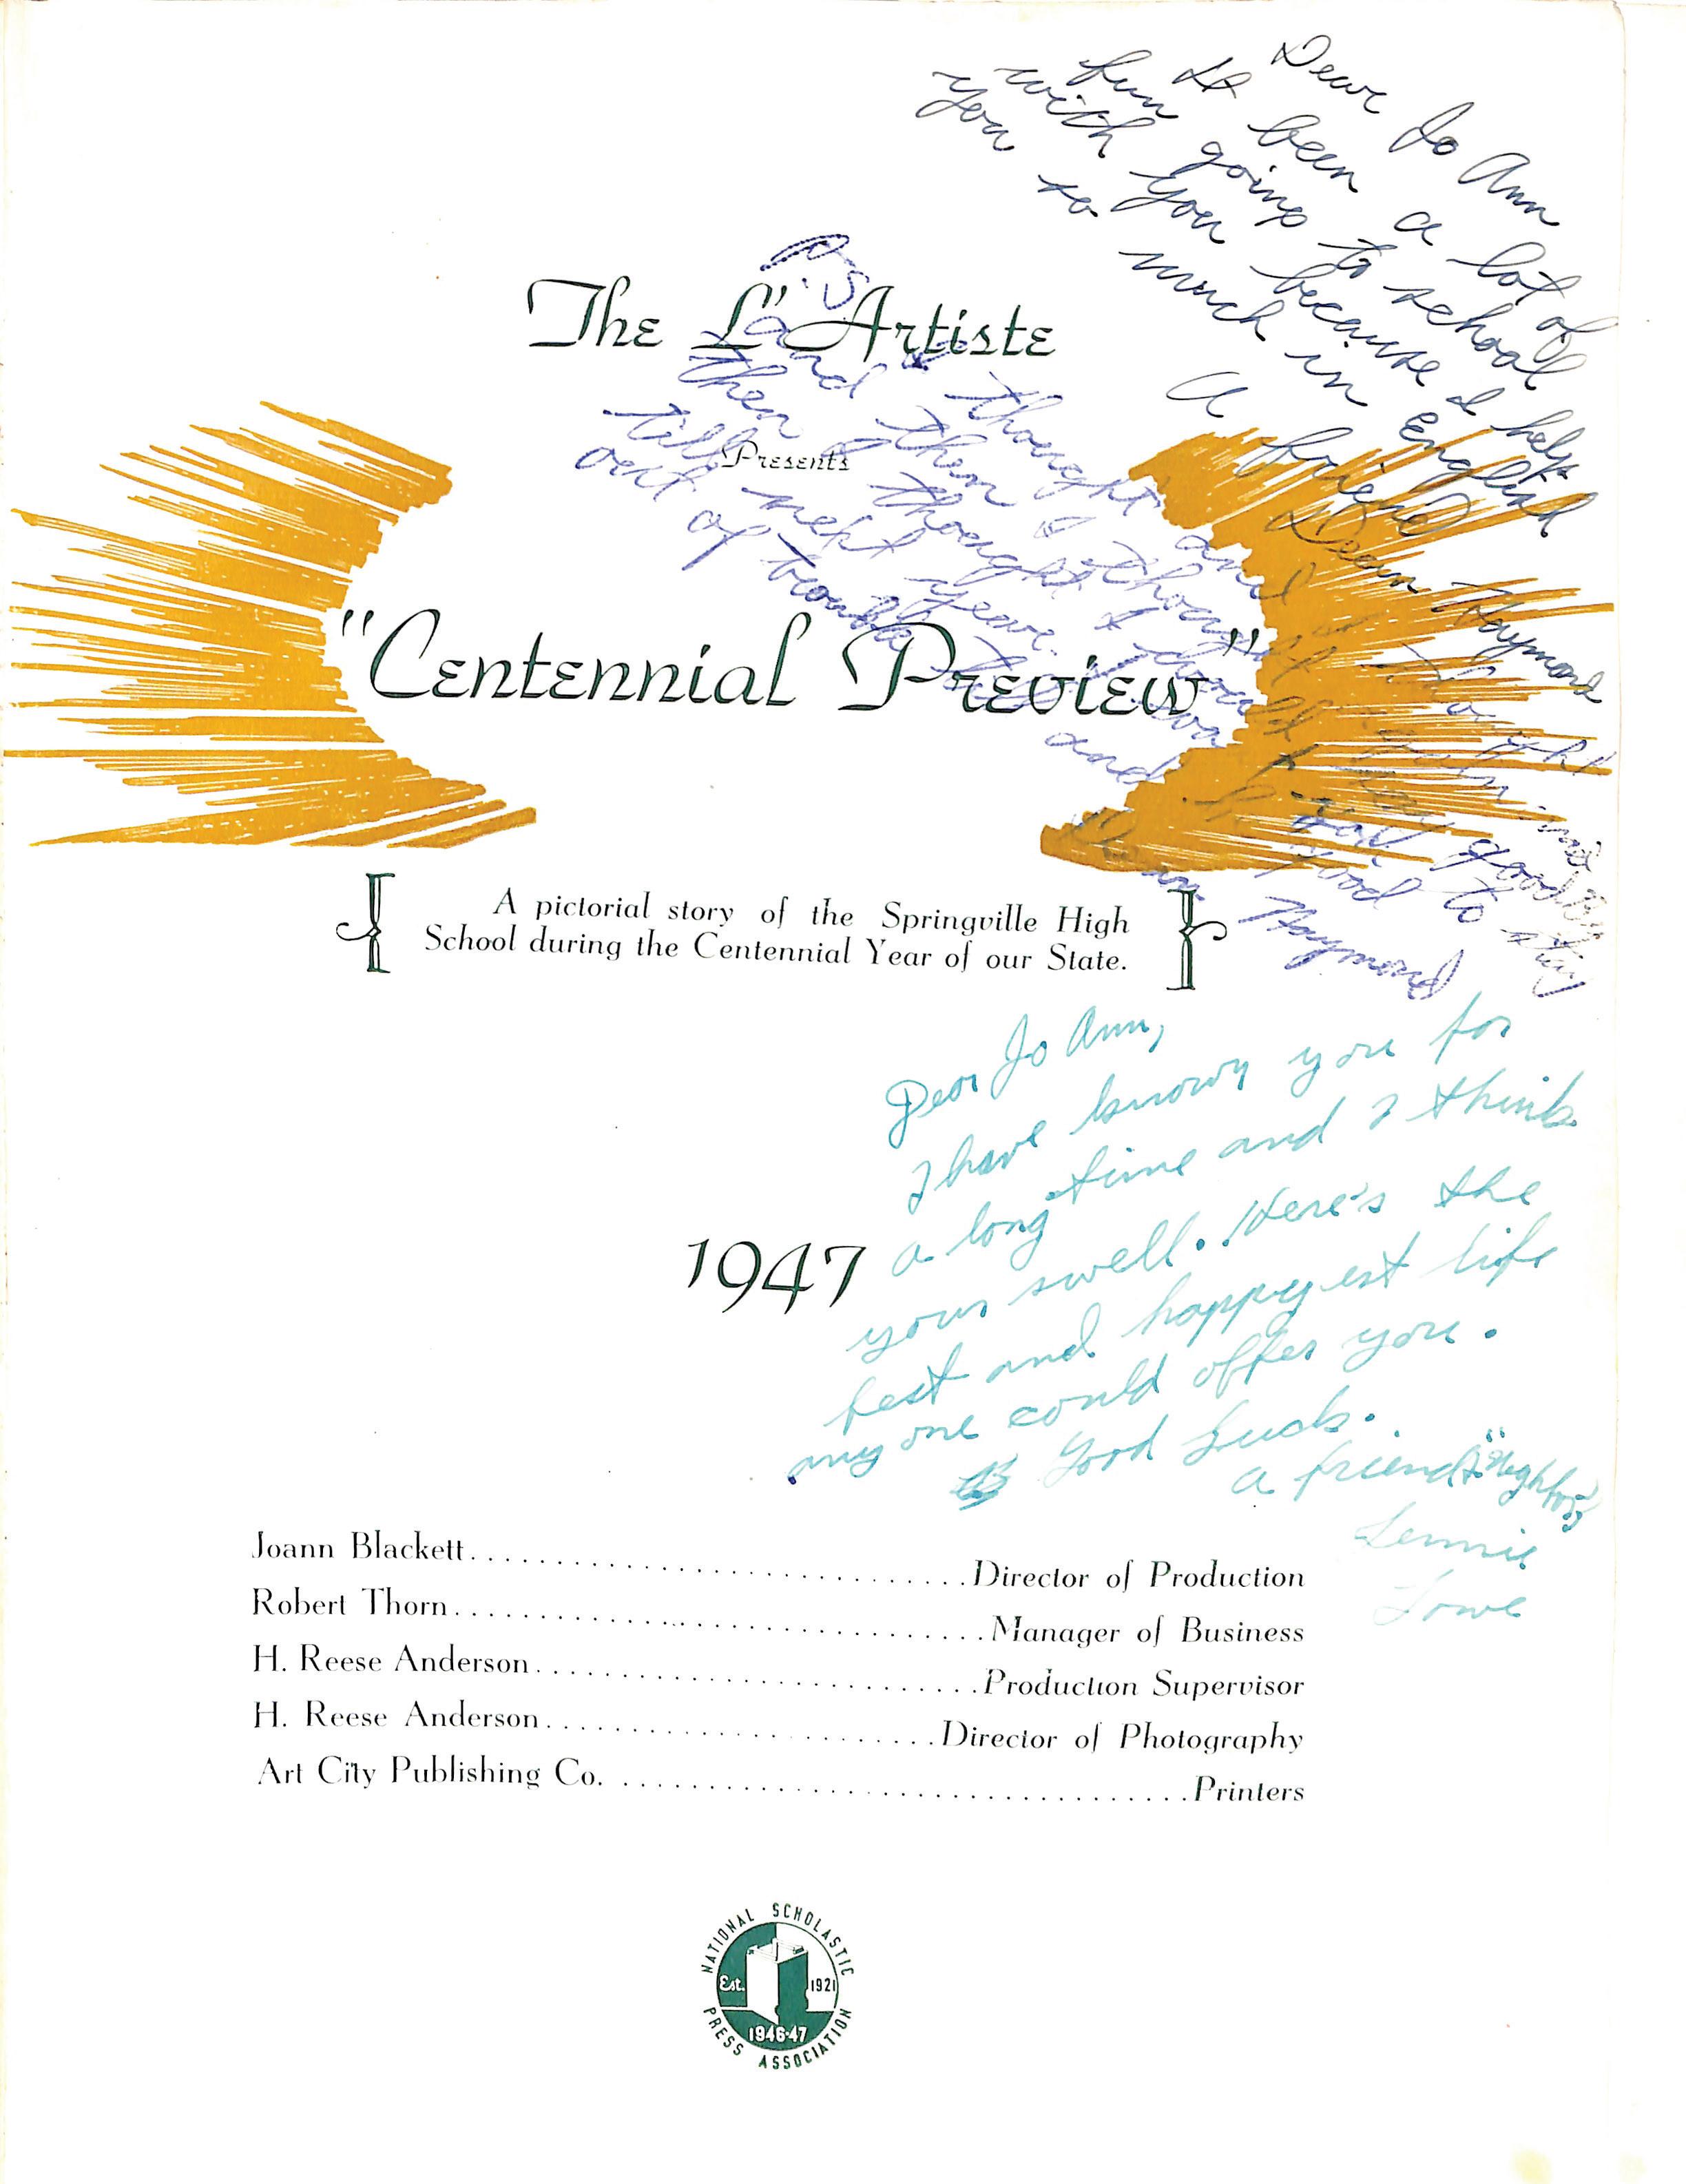 Dear Jo Ann
It been a lot of
fun going to school
with you because I help
you so much in English
A friend
Dean Haymond
The L'Artiste
Presents
"Centennial Preview"
P.S.
I thought and thought
and then I thought
then I thought I would
till next year.
out of trouble
and good to stay
Dean Haymond
A pictorial story of the Springville High
School during the Centennial Year of our State.
Dear Jo Ann,
I have known you for
a long time and I think
your swell. Here's the
best and happyest life
any one could offer you.
Good Luck.
a friend & "Neighbor"
Lennie
Lowe
1947
Joann Blackett. . . . . . . . . . . . . . . . . . . . . . . . . . . . . . . . . . . .Director of Production
Robert Thorn. . . . . . . . . . . . . . . . . . . . . . . . . . . . . . . . . . . . . .Manager of Business
H. Reese Anderson. . . . . . . . . . . . . . . . . . . . . . . . . . . . . . . .Production Supervisor
H. Reese Anderson. . . . . . . . . . . . . . . . . . . . . . . . . . . .Director of Photography
Art City Publishing Co. . . . . . . . . . . . . . . . . . . . . . . . . . . . . . . . . . . . . . . . .Printers
NATIONAL SCHOLASTIC
Est. 1921
1946-47
PRESS ASSOCIATION